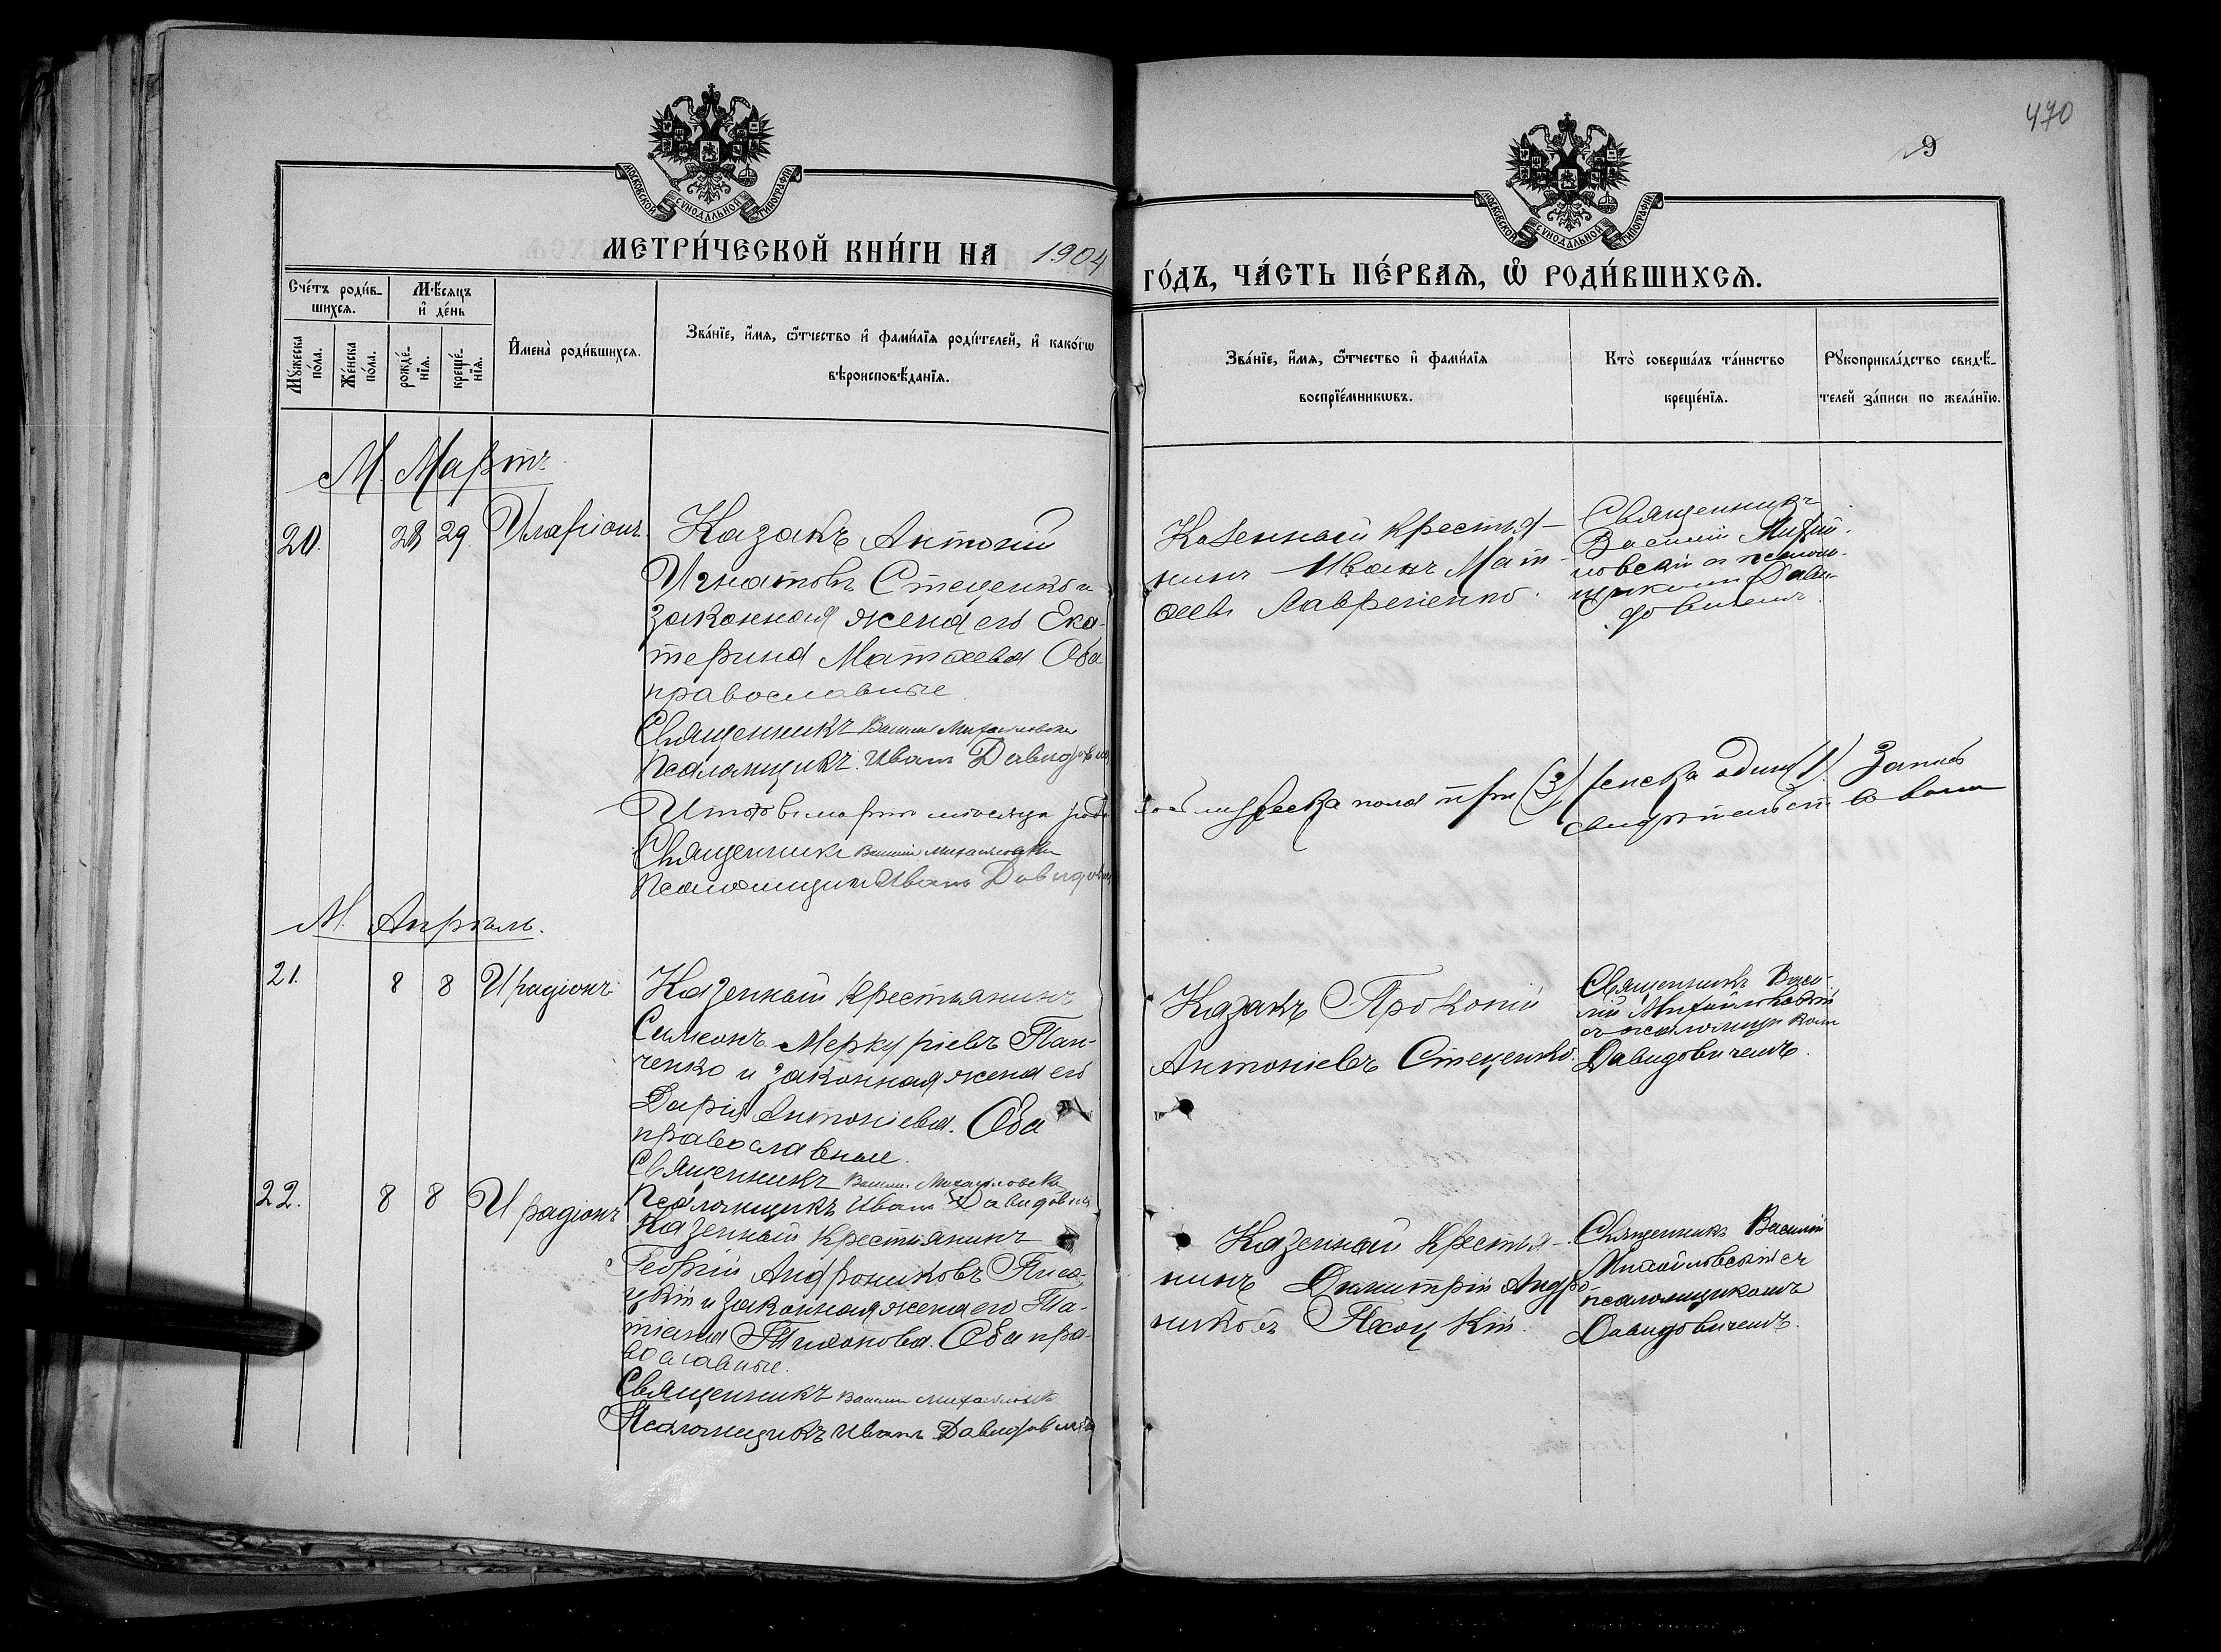 470
9
МОСКОВСКОЙ СѴНОДАЛЬНОЙ ТИПОГРАФІИ
МОСКОВСКОЙ СѴНОДАЛЬНОЙ ТИПОГРАФІИ
МЕТРИ́ЧЕСКОЙ КНИ́ГИ НА 1904
ГО́ДЪ, ЧА́СТЬ ПЕ́РВАѦ, Ѡ҆ РОДИ́ВШИХСѦ.
Сче́тъ роди́в-
шихсѧ.
Мꙋ́жеска по́ла.
Же́нска по́ла.
Мѣ́сѧцъ
и҆ де́нь
рожде́-
нїѧ.
креще́-
нїѧ.
И҆мена̀ роди́вшихсѧ.
Зва́нїе, и҆́мѧ, ѻ҆́тчество и҆ фами́лїѧ роди́телей, и҆ како́гѡ
вѣроисповѣ́данїѧ.
Зва́нїе, и҆́мѧ, ѻ҆́тчество и҆ фами́лїѧ
воспрїе́мникѡвъ.
Кто̀ соверша́лъ та́инство
креще́нїѧ.
Рꙋкоприкла́дство свидѣ́-
телей за́писи по жела́нїю.
М. Мартъ.
20. 28 29. Иларіонъ.
Казакъ Антоній
Игнатовъ Стеценко и
законная жена его Ека-
терина Матѳеева Оба
православные
Священникъ Василій Михайловскій
Псаломщикъ Иванъ Давидович
Казенный крестья-
нинъ Иванъ Мат-
ѳеевъ Лавреченко.
Священникъ
Василій Михай-
ловскій съ псалом-
щикомъ Дави-
довичемъ.
Итого въ мартѣ мѣсяцѣ родилось мужеска пола три (3) женска одна (1). Запись
свидѣтельствовали
Священникъ Василій Михайловскій
Псаломщикъ Иванъ Давидович
М. Апрѣль.
21. 8 8 Иродіонъ
Казенный крестьянинъ
Симеонъ Меркуріевъ Пан-
ченко и законная жена его
Дарія Антоніева. Оба
православные.
Священникъ Василій Михайловскій
Псаломщикъ Иванъ Давидович
Казакъ Прокопій
Антоніевъ Стеценко.
Священникъ Васи-
лій Михайловскій
съ псаломщикомъ
Давидовичемъ.
22. 8 8 Иродіонъ
Казенный крестьянинъ
Георгій Андрониковъ Песо-
цкій и законная жена его Та-
тіана Тихонова. Оба пра-
вославные.
Священникъ Василій Михайловскій
Псаломщикъ Иванъ Давидович
Казенный крестья-
нинъ Димитрій Андро-
никовъ Песоцкій.
Священникъ Василій
Михайловскій съ
псаломщикомъ
Давидовичемъ.